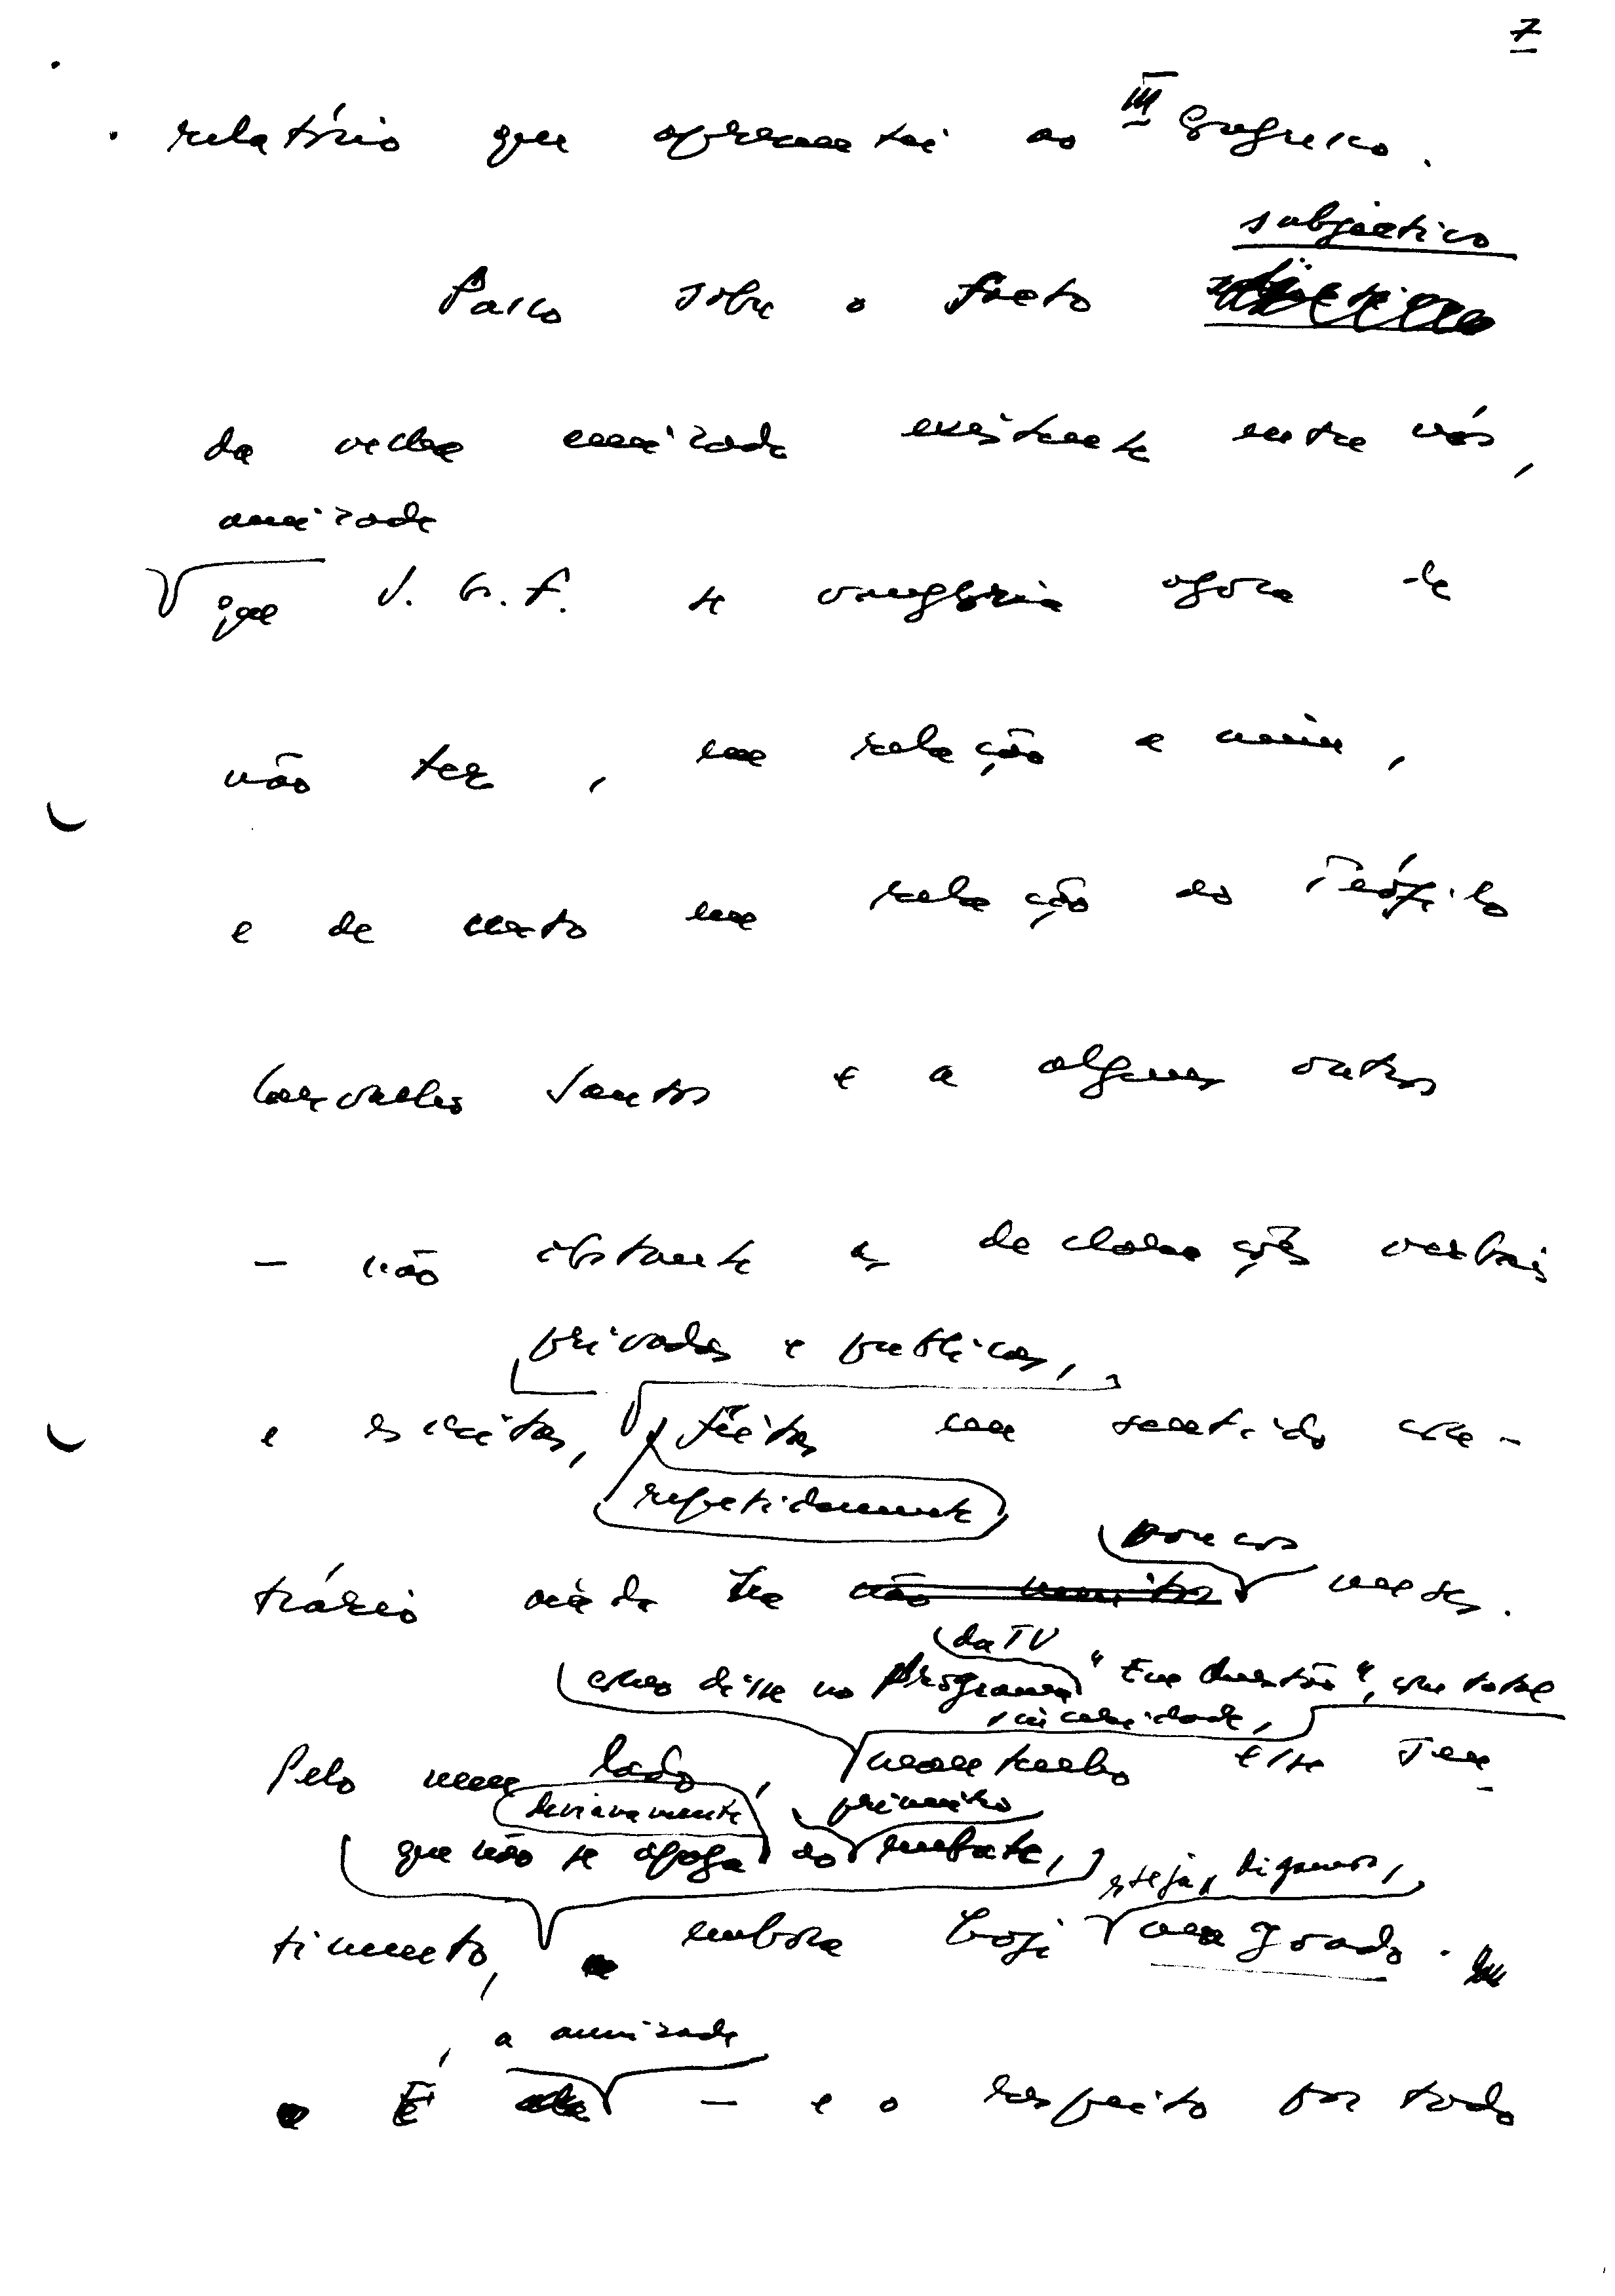 7
relatório que apresentei ao III Congresso.
subjectivo
Passo sobre o facto
da velha amizade existente entre nós,
amizade
que V. G. F. se vangloria agora de
não ter, em relação a mim,
e de certo em relação ao Teófilo
Carvalho Santos e a alguns outros
– não obstante as declarações verbais
privadas e publicas,
e escritas, feitas em sentido con-
repetidamente
poucos
trário ainda há não muitos meses.
da TV
como disse no programa "Em Questão", com total
sinceridade,
Pelo meu lado, mantenho esse sen-
primeiro
que não se apaga ao embate,
esteja, digamos,
timento, embora hoje em grau
a amizade
É – e o respeito por todo